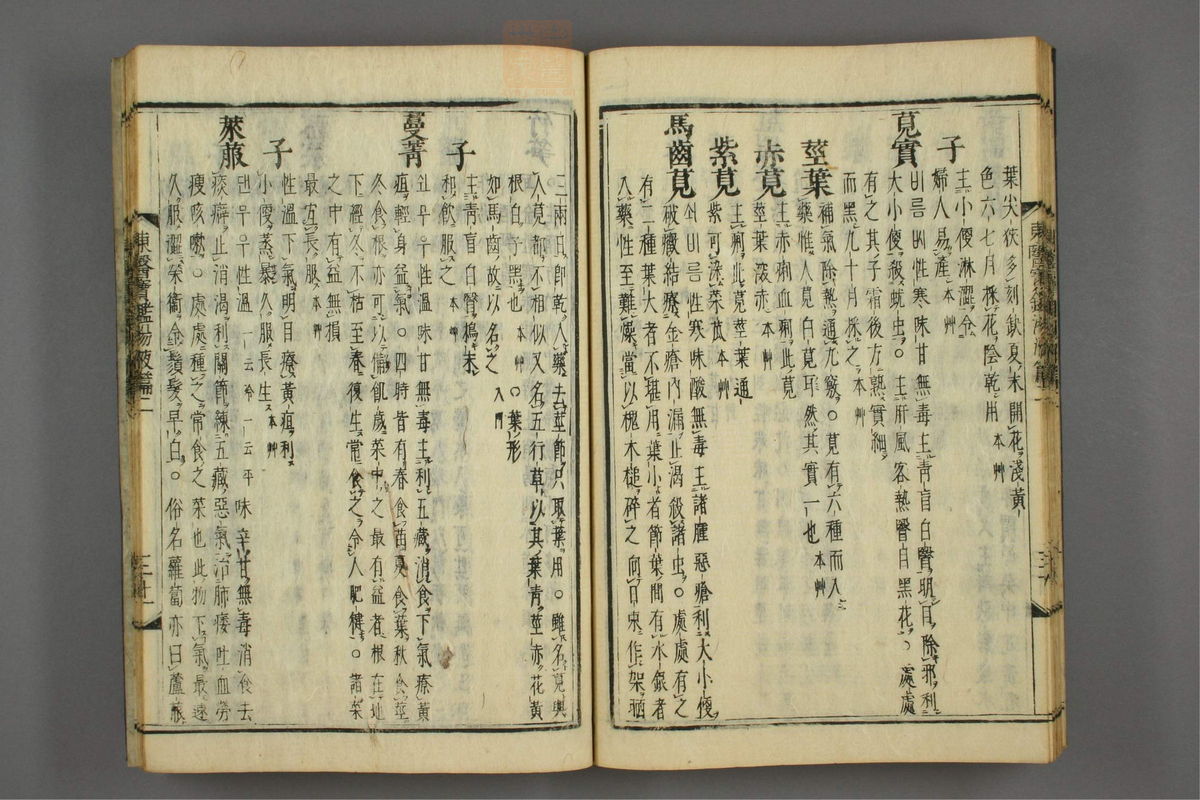 葉尖狹多刻缺夏末開花淺黃
色六七月採花陰乾用 本草
子
主小便淋澁令
婦人易產 本草
莧實
비름ᄡᅵ性寒味甘無毒主靑盲白瞖明目除邪利
大小便殺蚘虫○主肝風客熱瞖目黑花○處處
有之其子霜後方熟實細
而黑九十月採之 本草
莖葉
補氣除熱通九竅○莧有六種而入
藥惟人莧白莧耳然其實一也 本草
赤莧
主赤痢血痢此莧
莖葉深赤 本草
紫莧
主痢此莧莖葉通
紫可染菜苽 本草
馬齒莧
쇠비름性寒味酸無毒主諸腫惡瘡利大小便
破癥結療金瘡內漏止渴殺諸虫○處處有之
有二種葉大者不堪用葉小者節葉間有水銀者
入藥性至難燥當以槐木槌碎之向日東作架晒
三兩日卽乾入藥去莖節只取葉用○雖名莧與
人莧都不相似又名五行草以其葉靑莖赤花黃
根白子黑也 本草 ○葉形
如馬齒故以名之 入門
子
主靑盲白瞖搗末
和飮服之 本草
蔓菁
쉰무우性溫味甘無毒主利五藏消食下氣療黃
疸輕身益氣○四時皆有春食苗夏食葉秋食莖
冬食根亦可以備飢歲菜中之最有益者根在地
下經冬不枯至春復生常食之令人肥健○諸菜
之中有益無損
最宜長服 本草
子
性溫下氣明目療黃疸利
小便蒸暴久服長生 本草
萊菔
댄무우性溫 一云冷一云平 味辛甘無毒消食去
痰癖止消渴利關節練五藏惡氣治肺痿吐血勞
瘦咳嗽○處處種之常食之菜也此物下氣最速
久服澁榮衛令鬚髮早白○俗名蘿蔔亦曰蘆菔
東醫寶鑑湯液篇二